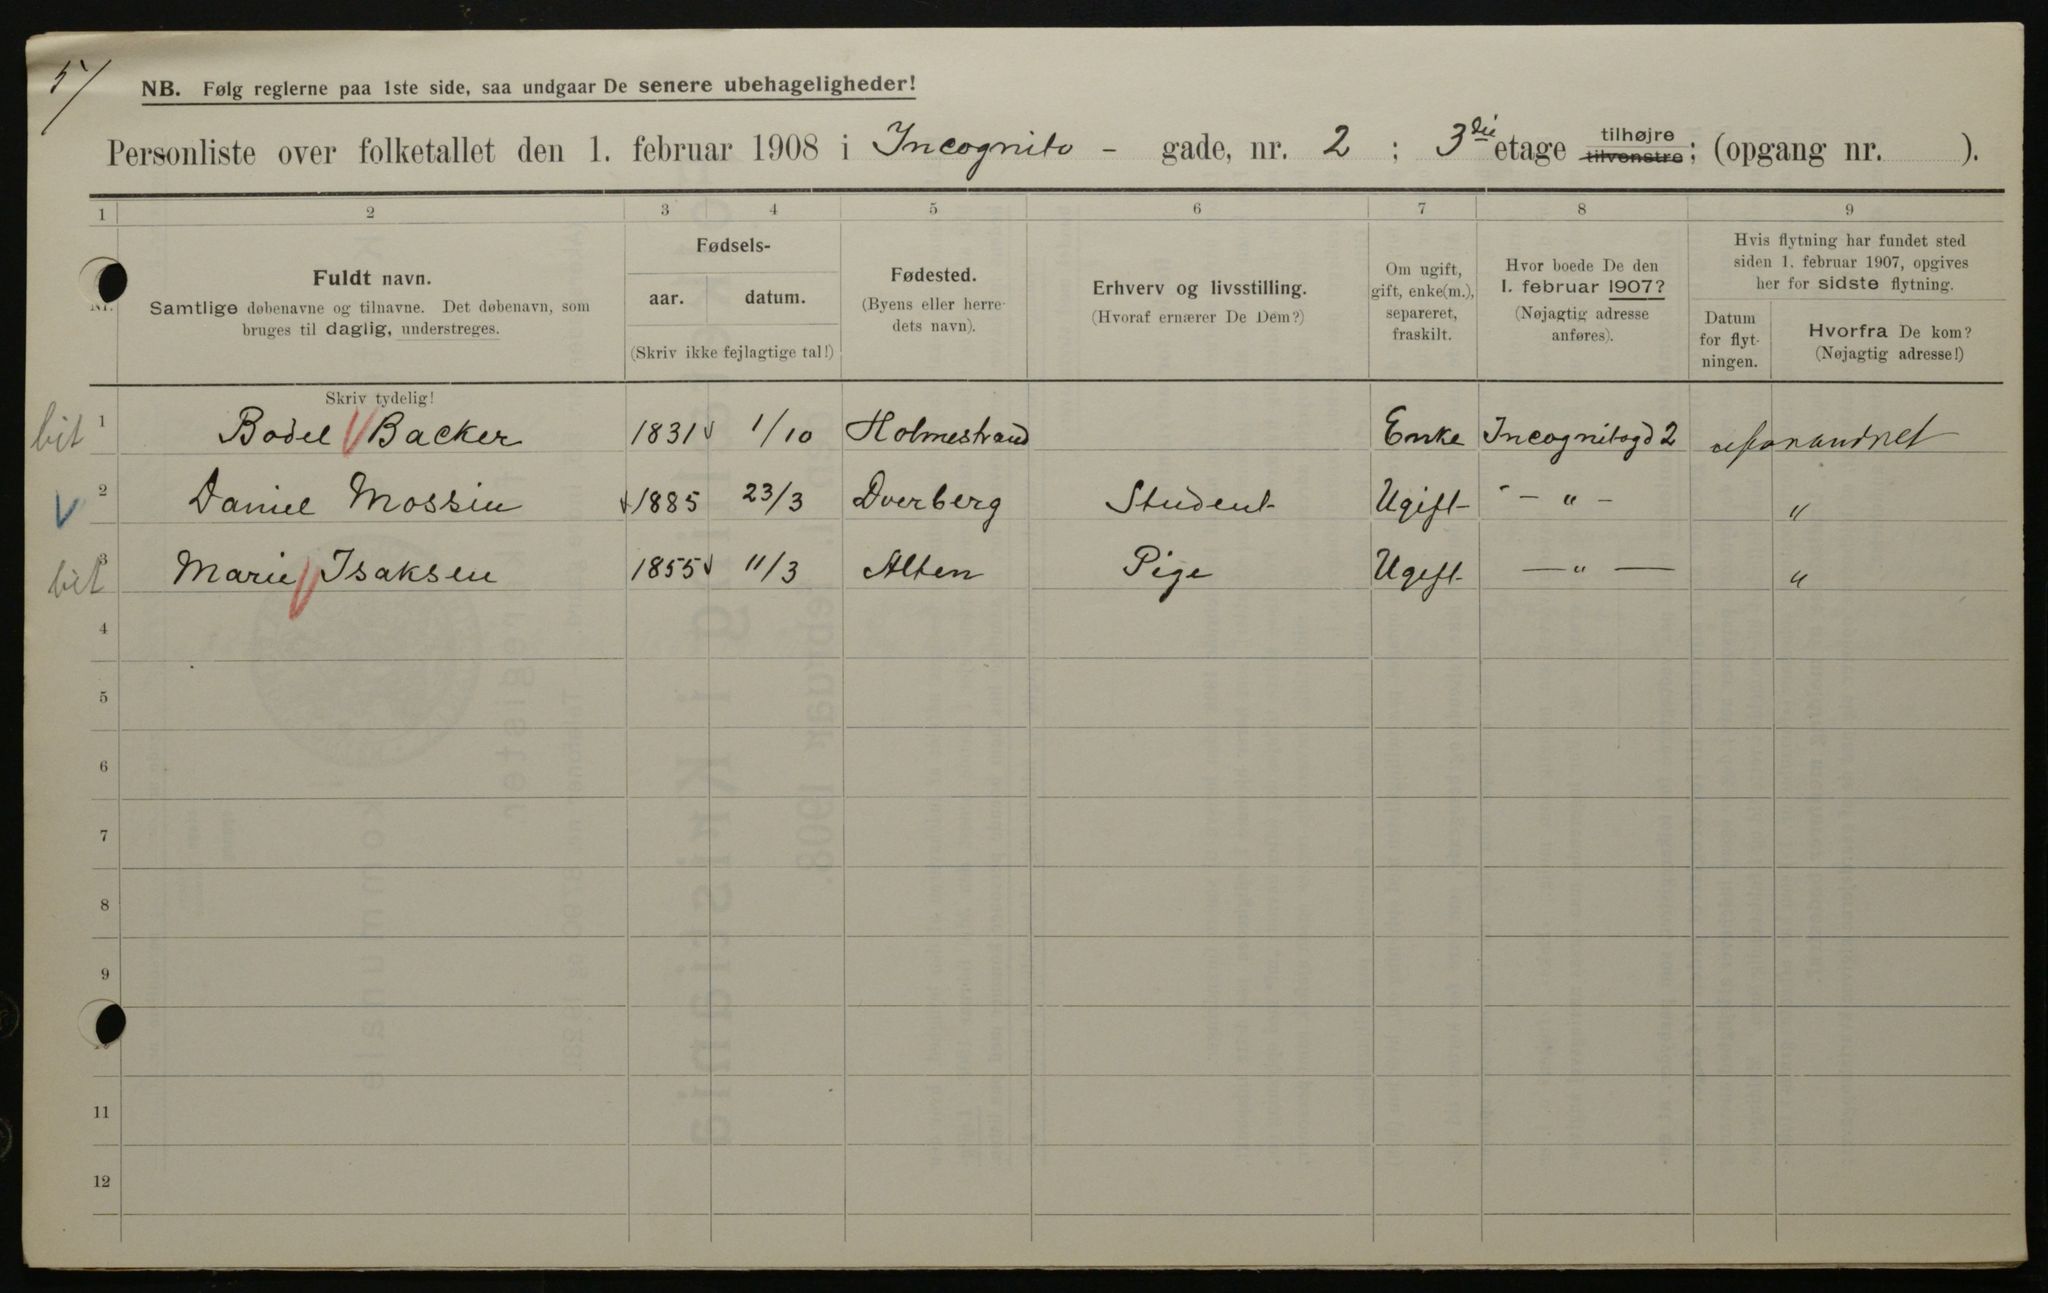 5/
NB. Følg reglerne paa 1ste side, saa undgaar De senere ubehageligheder!
Personliste over folketallet den 1. februar 1908 i Incognito - gade, nr. 2 ; 3die etage tilhøjre tilvenstre ; (opgang nr. ).
1 2 3 4 5 6 7 8 9
Nr.
Fuldt navn.
Samtlige døbenavne og tilnavne. Det døbenavn, som
bruges til daglig, understreges.
Fødsels-
aar. datum.
(Skriv ikke fejlagtige tal!)
Fødested.
(Byens eller herre-
dets navn).
Erhverv og livsstilling.
(Hvoraf ernærer De Dem?)
Om ugift,
gift, enke(m.),
separeret,
fraskilt.
Hvor boede De den
1. februar 1907?
(Nøjagtig adresse
anføres).
Hvis flytning har fundet sted
siden 1. februar 1907, opgives
her for sidste flytning.
Datum
for flyt-
ningen.
Hvorfra De kom?
(Nøjagtig adresse!)
Skriv tydelig!
bit 1 Bodel Backer 1831 1/10 Holmestrand Enke Incognitogd 2
2 Daniel Mossin 1885 23/3 Dverberg Student Ugift - " - "
bit 3 Marie Isaksen 1855 11/3 Alten Pige Ugift - " - "
4
5
6
7
8
9
11
12